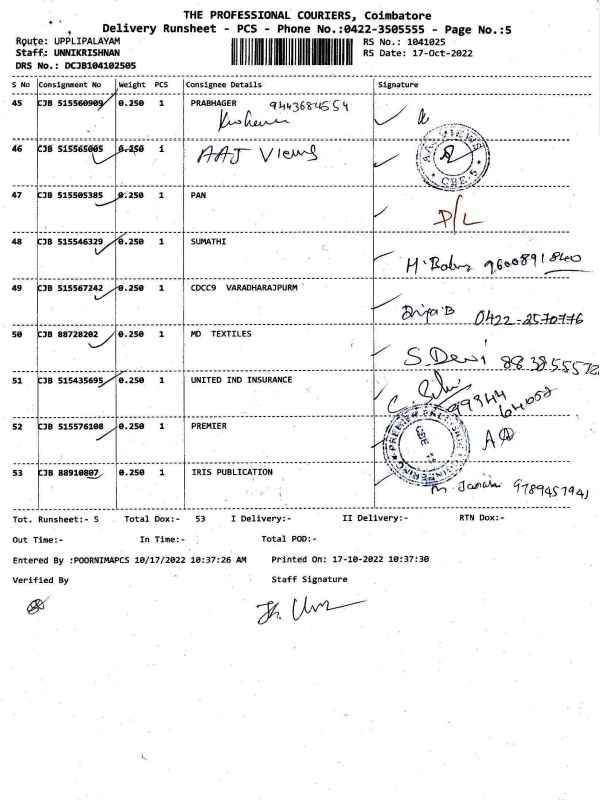 THE PROFESSIONAL COURIERS, Coimbatore
Delivery Runsheet - PCS - Phone No.:0422-3505555 - Page No.:5
Route: UPPLIPALAYAM RS No.: 1041025
Staff: UNNIKRISHNAN RS Date: 17-Oct-2022
DRS No.: DCJB104102505
S No Consignment No Weight PCS Consignee Details Signature
45 CJB 515560909 0.250 1 PRABHAGER 9443684554
46 CJB 515565005 0.250 1 AAJ Views
AAJ VIEWS CBE-5
47 CJB 515505385 0.250 1 PAN D/L
48 CJB 515546329 0.250 1 SUMATHI
M. Babu 9600891840
49 CJB 515567242 0.250 1 CDCC9 VARADHARAJPURM
0422-2570776
50 CJB 88728202 0.250 1 MD TEXTILES
S. Devi 88385557
51 CJB 515435695 0.250 1 UNITED IND INSURANCE
99344
64052
52 CJB 515576108 0.250 1 PREMIER
53 CJB 88910807 0.250 1 IRIS PUBLICATION
M. Janaki 9789457941
Tot. Runsheet:- 5 Total Dox:- 53 I Delivery:- II Delivery:- RTN Dox:-
Out Time:- In Time:- Total POD:-
Entered By :POORNIMAPCS 10/17/2022 10:37:26 AM Printed On: 17-10-2022 10:37:30
Verified By Staff Signature